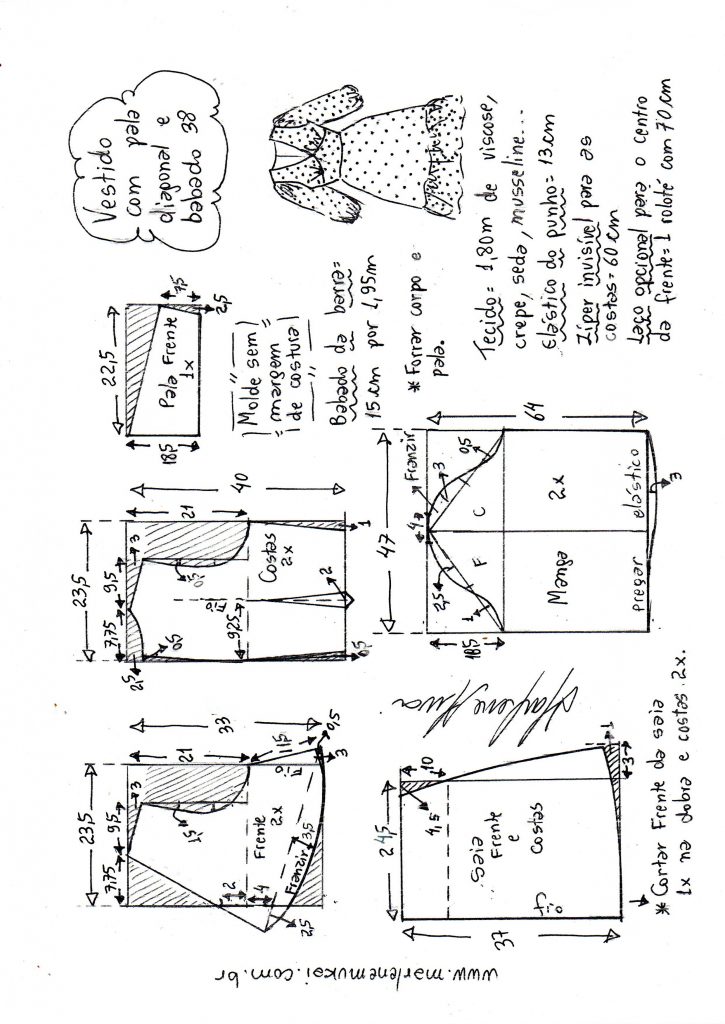 Vestido
com pala
diagonal e
babado 38
22,5
7,5
2,5
18,5
Pala Frente
1x
Molde sem
margem
de costura
Babado da barra=
15cm por 1,95m
* Forrar corpo e
pala.
Tecido= 1,80m de viscose,
crepe, seda, musseline...
Elástico do punho= 13cm
Zíper invisível para as
costas= 60cm
Laço opcional para o centro
da frente= 1 rolotê com 70cm
40
21
23,5
7,75
9,5
3
2,5
0,5
0,5
Fio
9,25
Costas
2x
2
1
0,5
33
21
23,5
7,75
9,5
3
1,5
Frente
2x
Fio
1,5
0,5
3
2
4
Franzir
3,5
2,5
47
64
18,5
4
Franzir
3
0,5
2,5
1
F
C
Manga
2x
pregar
elástico
3
24,5
10
4,5
Saia
Frente
e
Costas
fio
37
1
3
* Cortar Frente da saia
1x na dobra e costas 2x.
www.marlenemukai.com.br